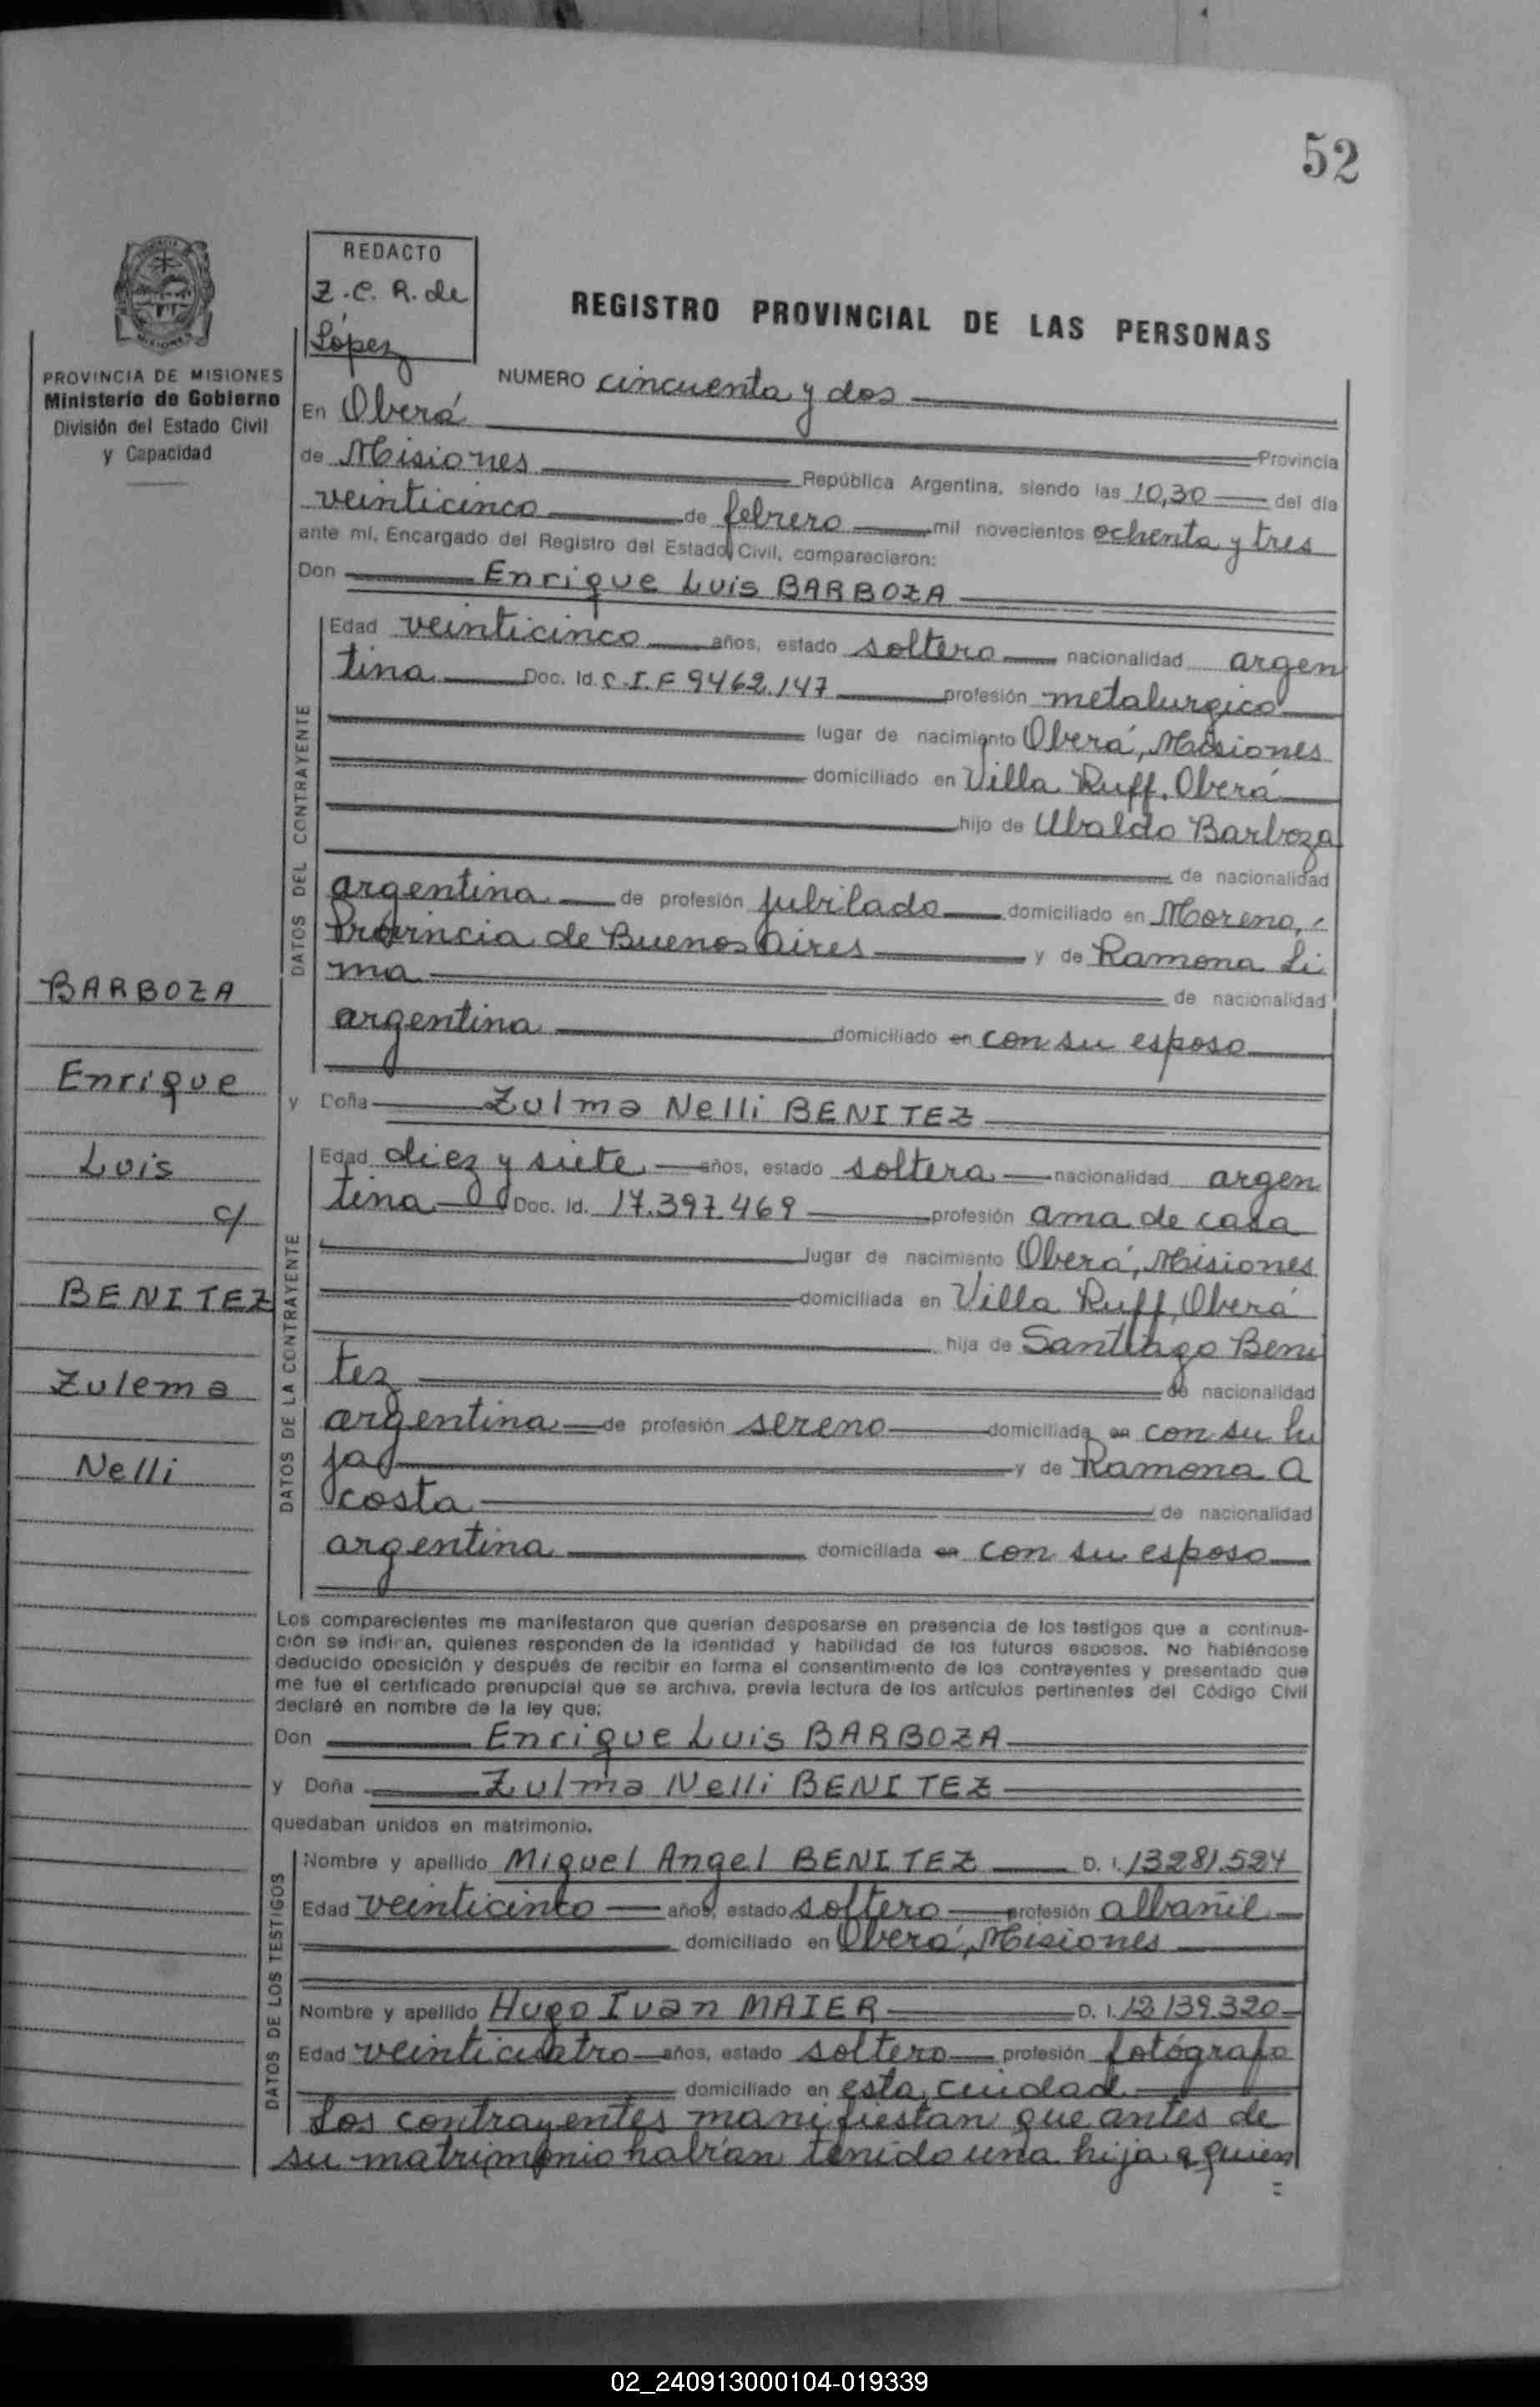 52
REDACTO
Z.C.R. de
López
REGISTRO PROVINCIAL DE LAS PERSONAS
PROVINCIA DE MISIONES
Ministerio de Gobierno
División del Estado Civil
y Capacidad
NUMERO cincuenta y dos
En Oberá
Provincia
de Misiones República Argentina, siendo las 10,30 del día
veinticinco de febrero mil novecientos ochenta y tres
ante mí, Encargado del Registro del Estado Civil, comparecieron:
Don Enrique Luis BARBOZA
DATOS DEL CONTRAYENTE
Edad veinticinco años, estado soltero nacionalidad argen
tina Doc. Id. C.I.F 9462.147 profesión metalurgico
lugar de nacimiento Oberá, Misiones
domiciliado en Villa Ruff, Oberá
hijo de Ubaldo Barboza
de nacionalidad
argentina de profesión jubilado domiciliado en Moreno,
Provincia de Buenos Aires y de Ramona Li
ma de nacionalidad
argentina domiciliado en con su esposo
y Doña Zulma Nelli BENITEZ
DATOS DE LA CONTRAYENTE
Edad diez y siete años, estado soltera nacionalidad argen
tina Doc. Id. 17.397.469 profesión ama de casa
lugar de nacimiento Oberá, Misiones
domiciliada en Villa Ruff, Oberá
hija de Santiago Beni
tez de nacionalidad
argentina de profesión sereno domiciliada en con su hi
ja y de Ramona A
costa de nacionalidad
argentina domiciliada en con su esposo
BARBOZA
Enrique
Luis
c/
BENITEZ
Zulema
Nelli
Los comparecientes me manifestaron que querían desposarse en presencia de los testigos que a continua-
ción se indican, quienes responden de la identidad y habilidad de los futuros esposos. No habiéndose
deducido oposición y después de recibir en forma el consentimiento de los contrayentes y presentado que
me fue el certificado prenupcial que se archiva, previa lectura de los artículos pertinentes del Código Civil
declaré en nombre de la ley que:
Don Enrique Luis BARBOZA
y Doña Zulma Nelli BENITEZ
quedaban unidos en matrimonio.
DATOS DE LOS TESTIGOS
Nombre y apellido Miguel Angel BENITEZ D. I. 13281.524
Edad veinticinco años, estado soltero profesión albañil
domiciliado en Oberá, Misiones
Nombre y apellido Hugo Ivan MAIER D. I. 12139.320
Edad veinticuatro años, estado soltero profesión fotógrafo
domiciliado en esta ciudad
Los contrayentes manifiestan que antes de
su matrimonio habían tenido una hija a quien
02_240913000104-019339